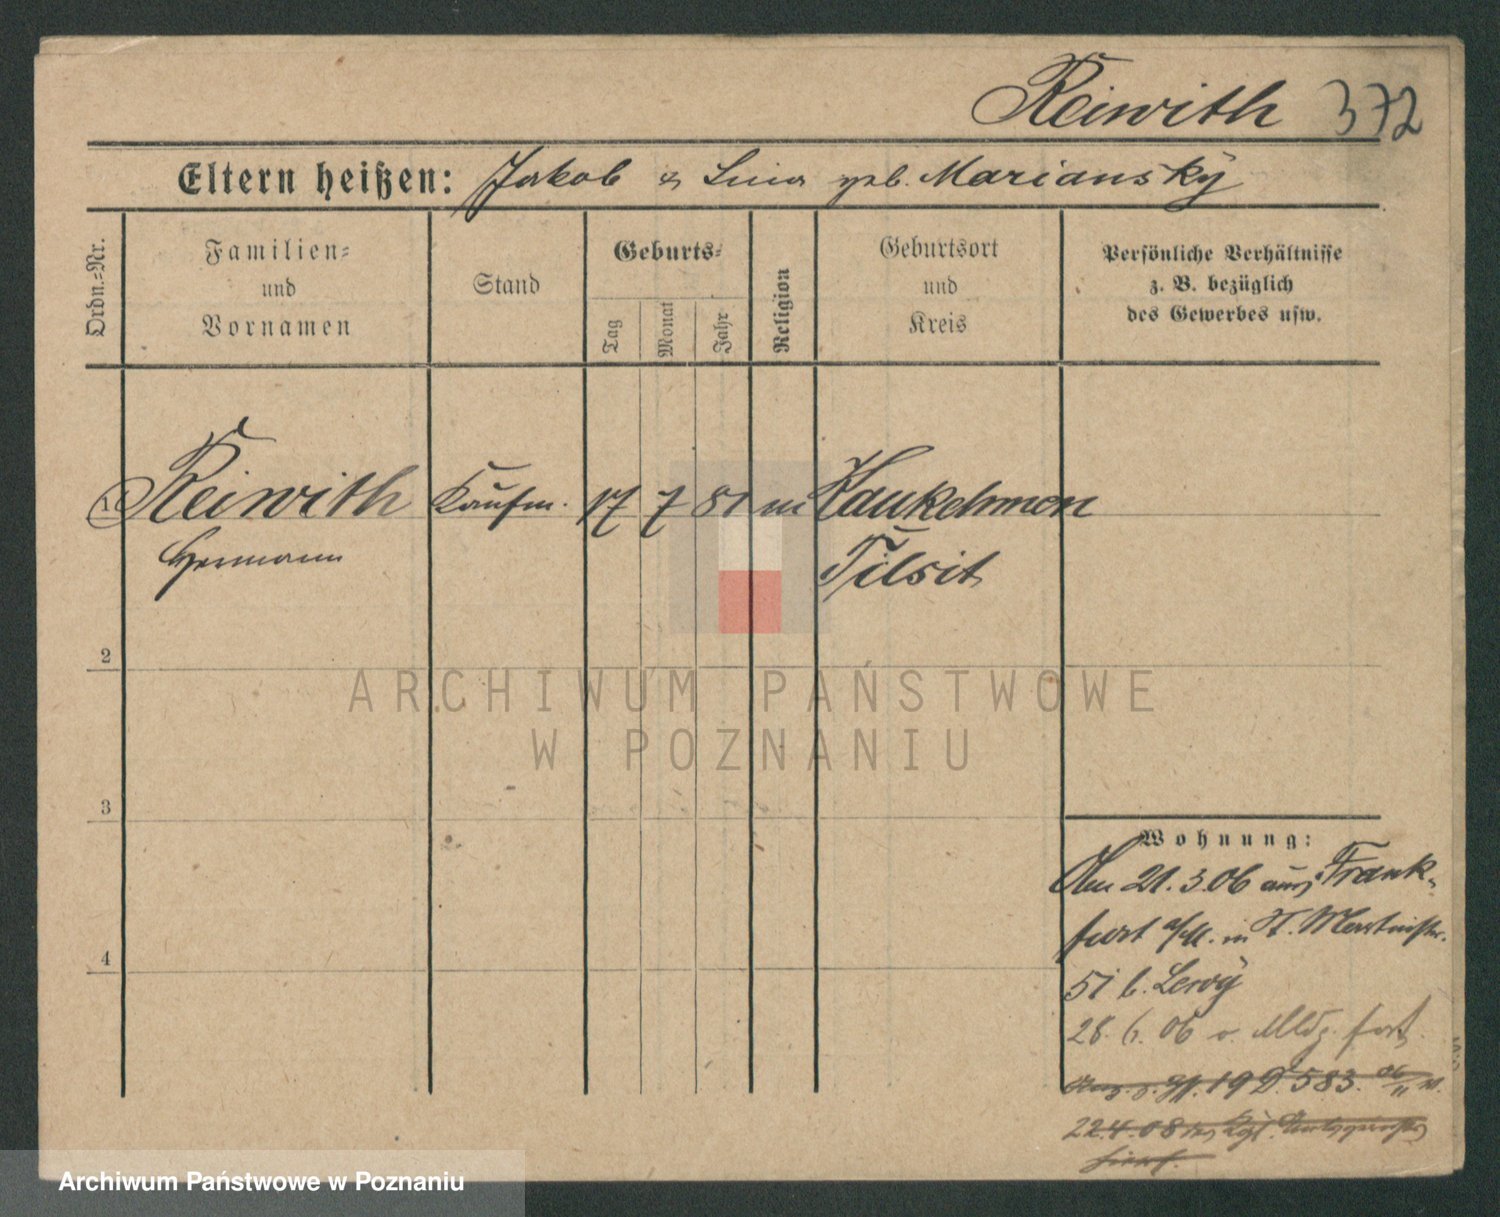 Reiwith 372
Eltern heißen: Jakob & Lina geb. Mariansky
Ordn.=Nr.
Familien= und Vornamen
Stand
Geburts=
Tag
Monat
Jahr
Religion
Geburtsort und Kreis
Persönliche Verhältnisse
z. B. bezüglich
des Gewerbes usw.
1 Reiwith Kaufm. 17 7 81 m Kaukehmen
Hermann Tilsit
2
3
4
ARCHIWUM PAŃSTWOWE
W POZNANIU
Wohnung:
Am 21.3.06 aus Frank-
furt a/M. in St. Martinstr.
51 b. Levy
28. 6. 06 o. Mldg. fort
19 D 583. 06
22.4.08 Kgl.
Archiwum Państwowe w Poznaniu